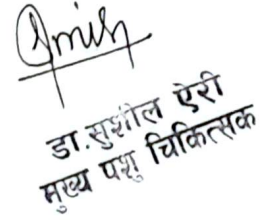 डा.सुशील ऐरी
मुख्य पशु चिकित्सक